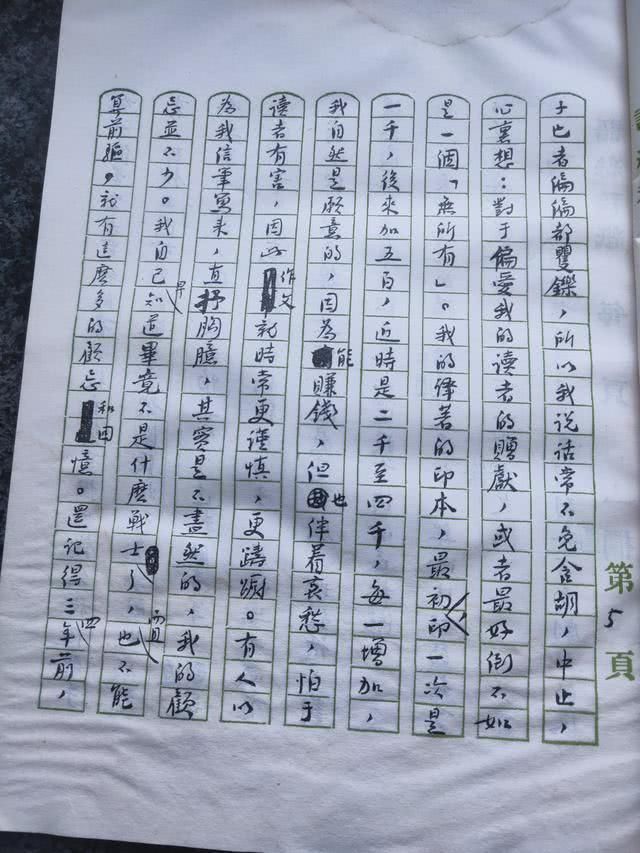 子也者偏偏都矍鑠，所以我说话常不免含胡，中止，
心裏想：對于偏愛我的读者的贈獻，或者最好倒不如
是一個「無所有」。我的譯著的印本，最初，印一次是
一千，後來加五百，近時是二千至四千，每一增加，
我自然是願意的，因為能賺錢，但也伴着哀愁，怕于
读者有害，因此作文就時常更謹慎，更躊躇。有人以
為我信筆寫來，直抒胸臆，其實是不盡然的，我的顧
忌並不少。我自己早知道畢竟不是什麽戰士了，而且也不能
算前驅，就有這麽多的顧忌和回憶。還记得三四年前，
第5頁